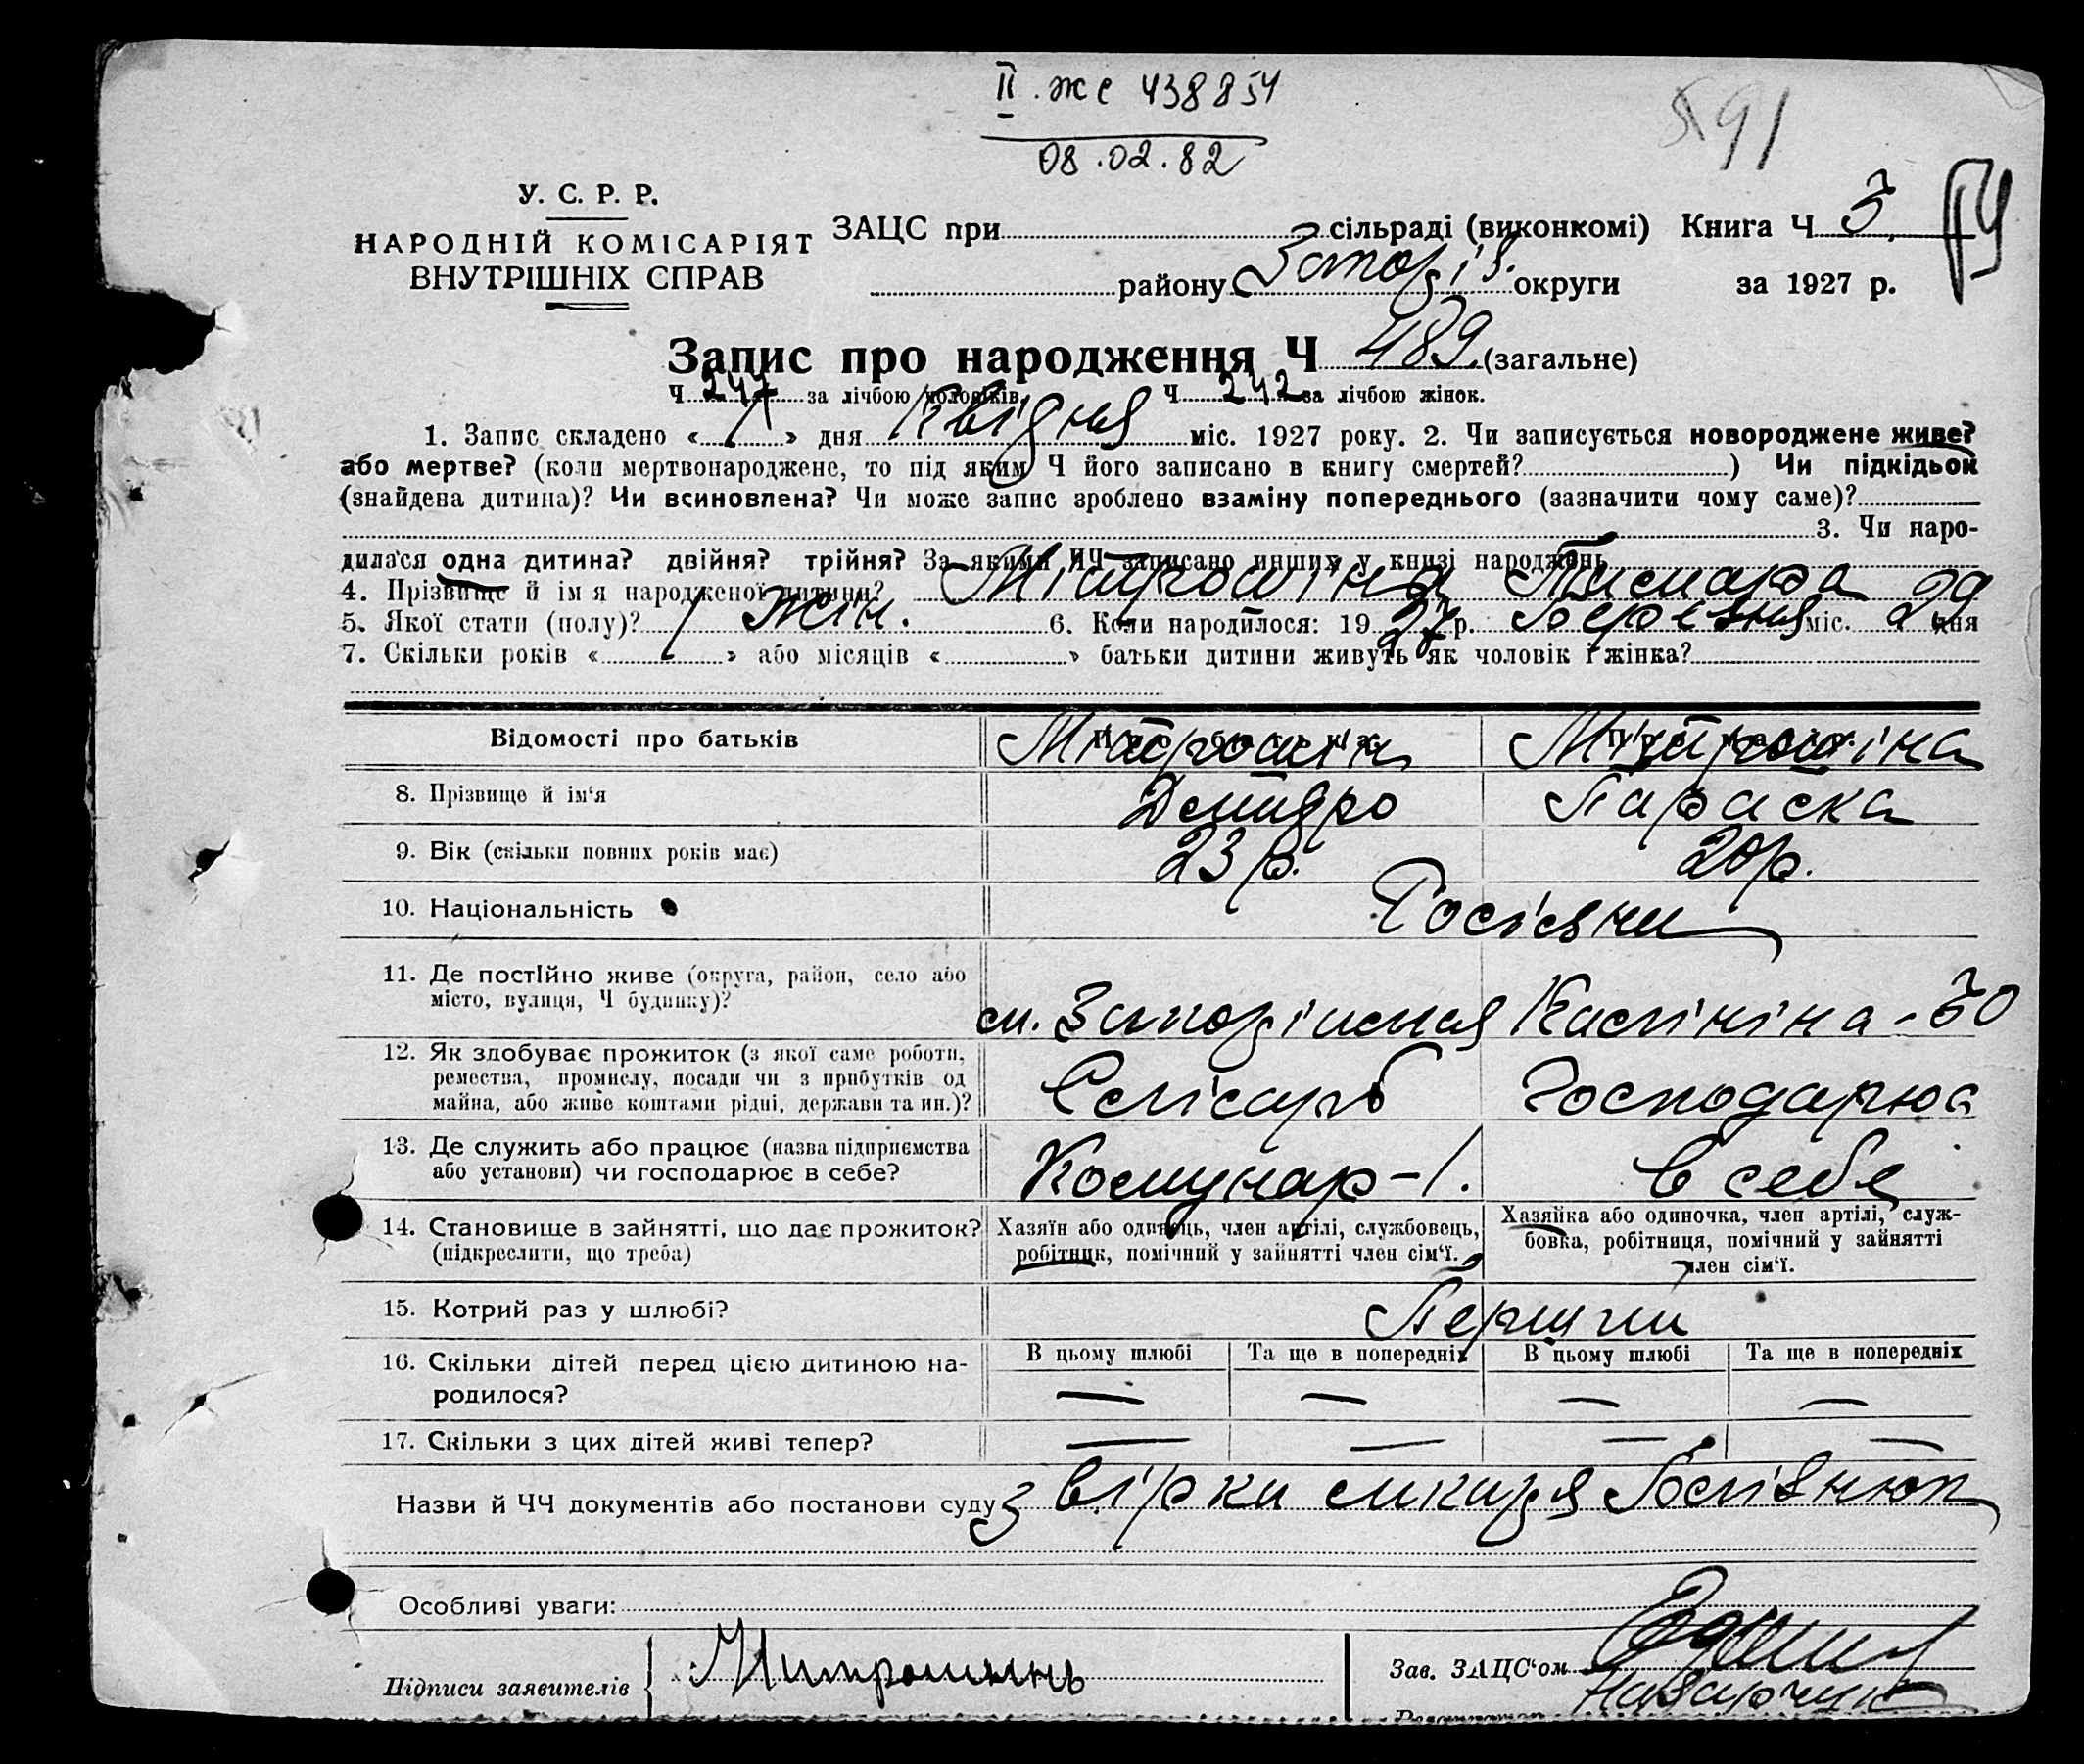 II. ЖС 438854
08.02.82
591
У. С. Р. Р.
НАРОДНІЙ КОМІСАРІЯТ
ВНУТРІШНІХ СПРАВ
ЗАЦС при сільраді (виконкомі) Книга Ч 3
району Запоріз. округи за 1927 р.
Запис про народження Ч 489 (загальне)
Ч 247 за лічбою чоловіків, Ч 242 за лічбою жінок.
1. Запис складено « » дня Квідня міс. 1927 року. 2. Чи записується новороджене живе?
або мертве? (коли мертвонароджене, то під яким Ч його записано в книгу смертей? ) Чи підкідьок
(знайдена дитина)? Чи всиновлена? Чи може запис зроблено взаміну попереднього (зазначити чому саме)?
3. Чи наро-
дилася одна дитина? двійня? трійня? За якими ЧЧ записано инших у книзі народжень
4. Прізвище й ім'я народженої дитини? Мітрошіна Тамара
5. Якої стати (полу)? жін. 6. Коли народилося: 19 27 р. Березня міс. 29 дня
7. Скільки років « » або місяців « » батьки дитини живуть як чоловік і жінка?
Відомості про батьків Мітрошін Мітрошіна
8. Прізвище й ім'я Дмитро Параска
9. Вік (скільки повних років має) 23 р. 20 р.
10. Національність Росіяни
11. Де постійно живе (округа, район, село або
місто, вулиця, Ч будинку)?
м. Запоріжжя Калініна - 30
12. Як здобуває прожиток (з якої саме роботи,
ремества, промислу, посади чи з прибутків од
майна, або живе коштами рідні, держави та ин.)?
Слісарь Господарює
13. Де служить або працює (назва підприємства
або установи) чи господарює в себе?
Комунар - 1. в себе
14. Становище в зайнятті, що дає прожиток?
(підкреслити, що треба)
Хазяїн або одинець, член артілі, службовець,
робітник, помічний у зайнятті член сім'ї.
Хазяйка або одиночка, член артілі, служ-
бовка, робітниця, помічний у зайнятті
член сім'ї.
15. Котрий раз у шлюбі? Перший
16. Скільки дітей перед цією дитиною на-
родилося?
В цьому шлюбі Та ще в попередніх В цьому шлюбі Та ще в попередніх
— — — —
17. Скільки з цих дітей живі тепер? — — — —
Назви й ЧЧ документів або постанови суду
Особливі уваги:
Підписи заявителів Митрошинь
Зав. ЗАЦС'ом